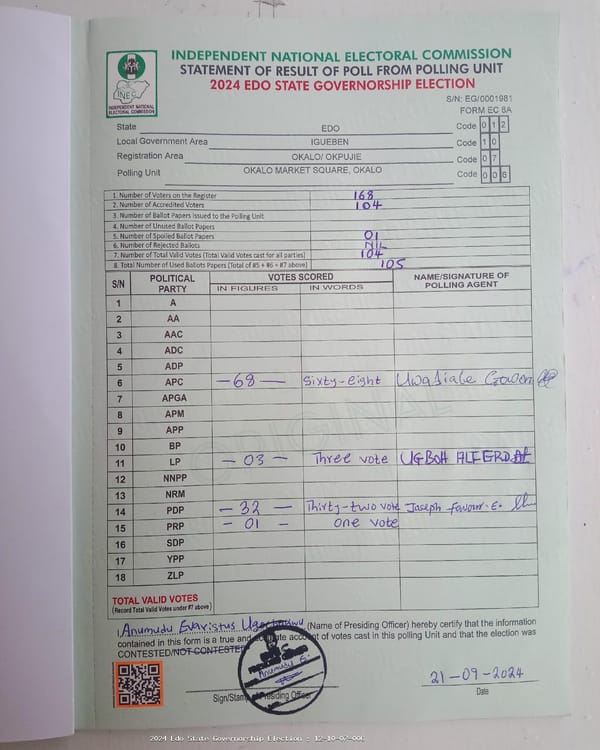 INDEPENDENT NATIONAL ELECTORAL COMMISSION
STATEMENT OF RESULT OF POLL FROM POLLING UNIT
2024 EDO STATE GOVERNORSHIP ELECTION
INEC
INDEPENDENT NATIONAL
ELECTORAL COMMISSION
S/N: EG/0001981
FORM EC 8A
State EDO Code 0 1 2
Local Government Area IGUEBEN Code 1 0
Registration Area OKALO/ OKPUJIE Code 0 7
Polling Unit OKALO MARKET SQUARE, OKALO Code 0 0 6
1. Number of Voters on the Register 168
2. Number of Accredited Voters 104
3. Number of Ballot Papers Issued to the Polling Unit
4. Number of Unused Ballot Papers
5. Number of Spoiled Ballot Papers 01
6. Number of Rejected Ballots NIL
7. Number of Total Valid Votes (Total Valid Votes cast for all parties) 104
8. Total Number of Used Ballots Papers (Total of #5 + #6 + #7 above) 105
S/N POLITICAL PARTY VOTES SCORED NAME/SIGNATURE OF POLLING AGENT
IN FIGURES IN WORDS
1 A
2 AA
3 AAC
4 ADC
5 ADP
6 APC -68- Sixty-eight
7 APGA
8 APM
9 APP
10 BP
11 LP -03- Three vote UGBOH ALFERD
12 NNPP
13 NRM
14 PDP -32- Thirty-two vote Joseph Favour .E.
15 PRP -01- one vote
16 SDP
17 YPP
18 ZLP
ORIGINAL
TOTAL VALID VOTES
(Record Total Valid Votes under #7 above)
I Anumudu Evaristus (Name of Presiding Officer) hereby certify that the information
contained in this form is a true and account of votes cast in this polling Unit and that the election was
CONTESTED/NOT CONTESTED
Anumudu E.
Sign/Stamp of Presiding Officer
21-09-2024
Date
2024 Edo State Governorship Election - 12-10-07-006